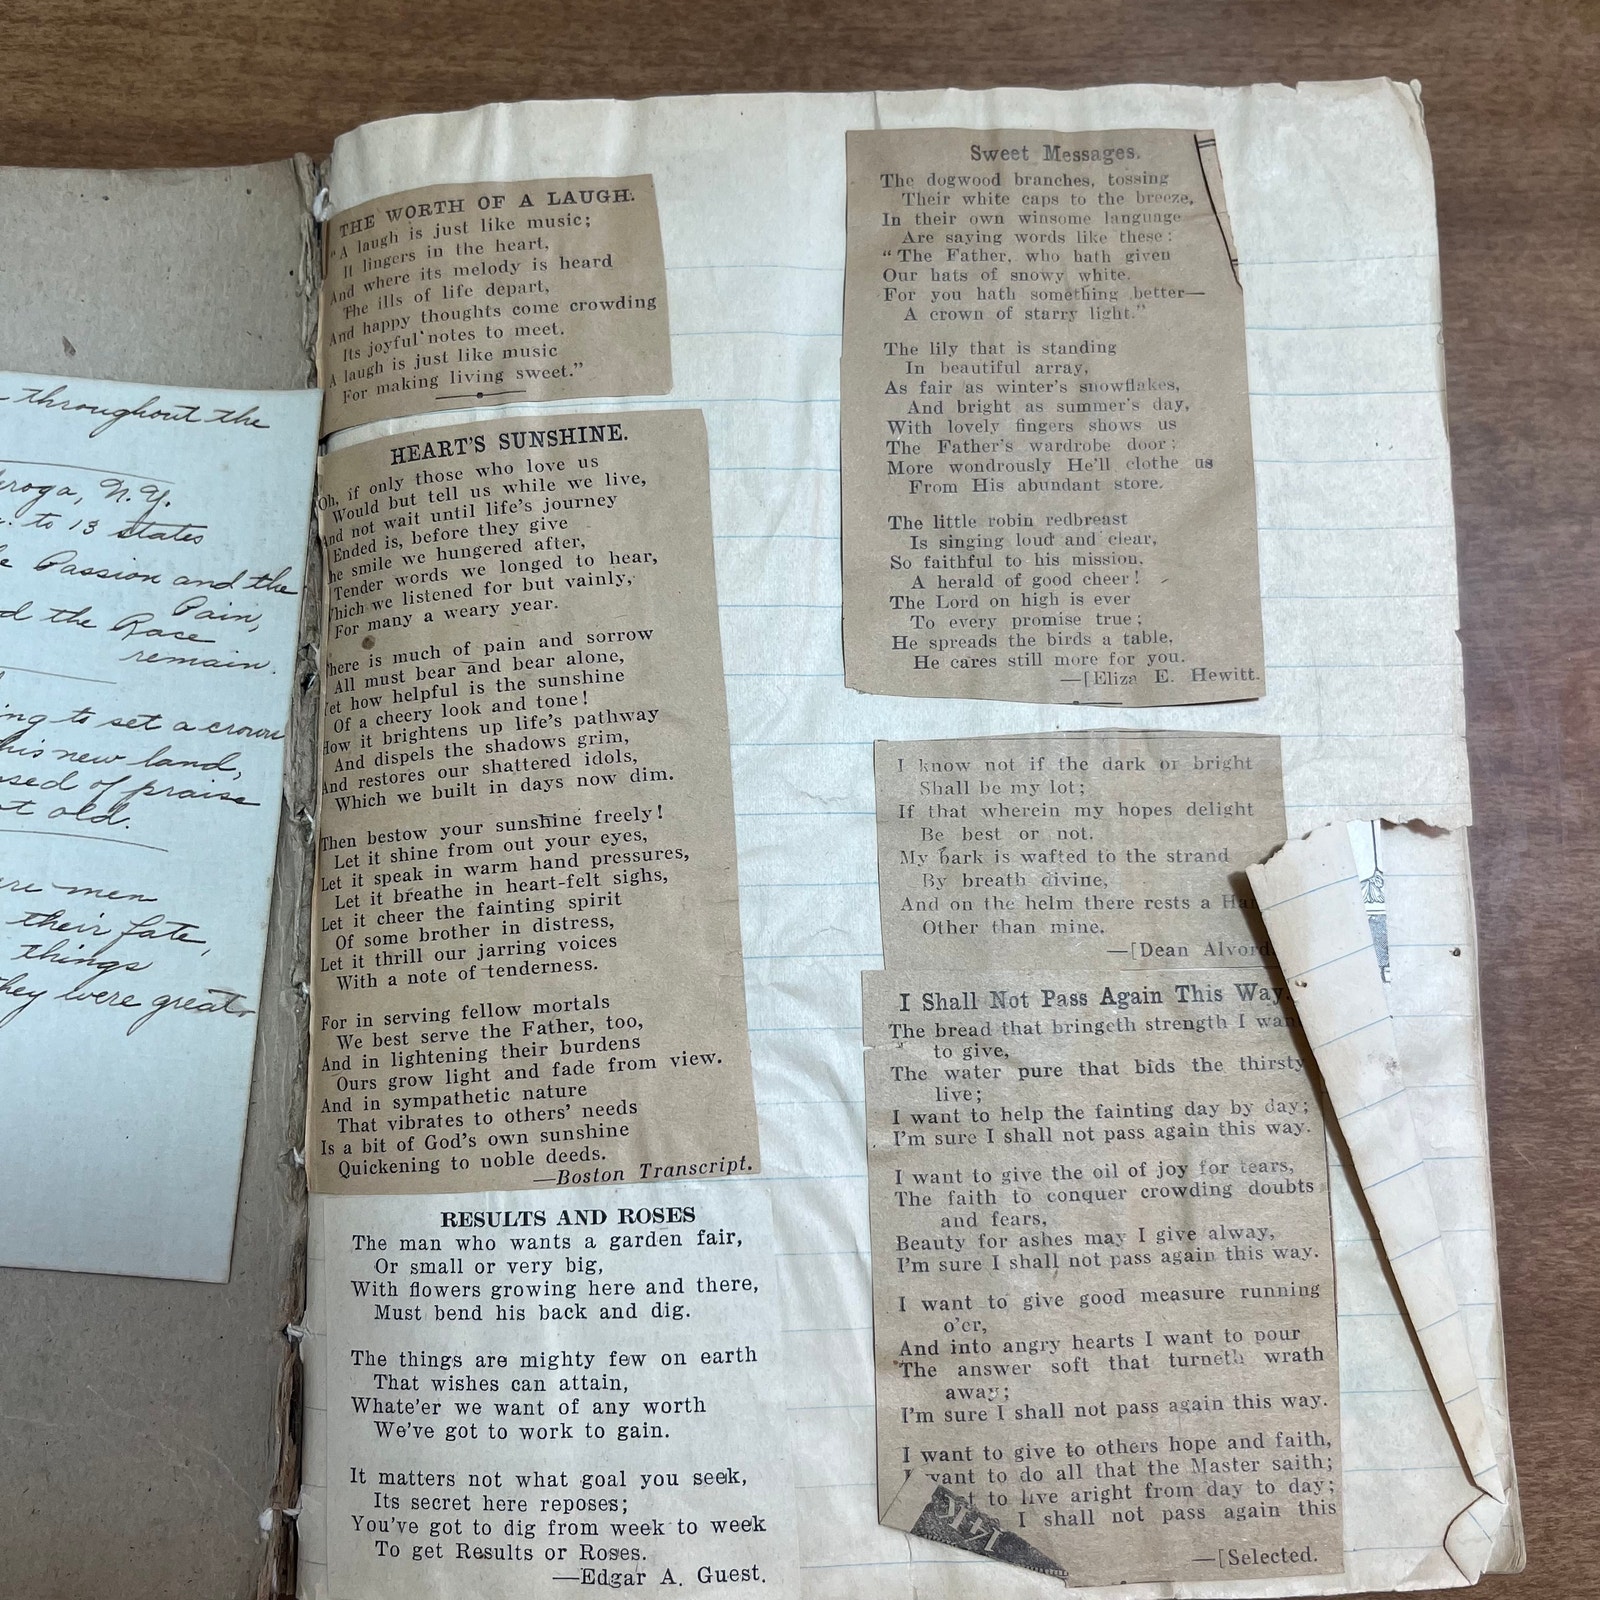 throughout the
N.Y.
to 13 states
Passion and the
Pain,
the Race
remain.
to set a crown
this new land,
of praise
old.
men
their fate,
things
they were great.
THE WORTH OF A LAUGH.
"A laugh is just like music;
It lingers in the heart,
And where its melody is heard
The ills of life depart,
And happy thoughts come crowding
Its joyful notes to meet.
A laugh is just like music
For making living sweet."
HEART'S SUNSHINE.
Oh, if only those who love us
Would but tell us while we live,
And not wait until life's journey
Ended is, before they give
he smile we hungered after,
Tender words we longed to hear,
hich we listened for but vainly,
For many a weary year.
here is much of pain and sorrow
All must bear and bear alone,
et how helpful is the sunshine
Of a cheery look and tone!
How it brightens up life's pathway
And dispels the shadows grim,
And restores our shattered idols,
Which we built in days now dim.
Then bestow your sunshine freely!
Let it shine from out your eyes,
Let it speak in warm hand pressures,
Let it breathe in heart-felt sighs,
Let it cheer the fainting spirit
Of some brother in distress,
Let it thrill our jarring voices
With a note of tenderness.
For in serving fellow mortals
We best serve the Father, too,
And in lightening their burdens
Ours grow light and fade from view.
And in sympathetic nature
That vibrates to others' needs
Is a bit of God's own sunshine
Quickening to noble deeds.
—Boston Transcript.
RESULTS AND ROSES
The man who wants a garden fair,
Or small or very big,
With flowers growing here and there,
Must bend his back and dig.
The things are mighty few on earth
That wishes can attain,
Whate'er we want of any worth
We've got to work to gain.
It matters not what goal you seek,
Its secret here reposes;
You've got to dig from week to week
To get Results or Roses.
—Edgar A. Guest.
Sweet Messages.
The dogwood branches, tossing
Their white caps to the breeze,
In their own winsome language
Are saying words like these:
"The Father, who hath given
Our hats of snowy white,
For you hath something better—
A crown of starry light."
The lily that is standing
In beautiful array,
As fair as winter's snowflakes,
And bright as summer's day,
With lovely fingers shows us
The Father's wardrobe door;
More wondrously He'll clothe us
From His abundant store.
The little robin redbreast
Is singing loud and clear,
So faithful to his mission,
A herald of good cheer!
The Lord on high is ever
To every promise true;
He spreads the birds a table,
He cares still more for you.
—[Eliza E. Hewitt.
I know not if the dark or bright
Shall be my lot;
If that wherein my hopes delight
Be best or not.
My bark is wafted to the strand
By breath divine,
And on the helm there rests a Han
Other than mine.
—[Dean Alvord.
I Shall Not Pass Again This Way.
The bread that bringeth strength I wan
to give,
The water pure that bids the thirsty
live;
I want to help the fainting day by day;
I'm sure I shall not pass again this way.
I want to give the oil of joy for tears,
The faith to conquer crowding doubts
and fears,
Beauty for ashes may I give alway,
I'm sure I shall not pass again this way.
I want to give good measure running
o'er,
And into angry hearts I want to pour
The answer soft that turneth wrath
away;
I'm sure I shall not pass again this way.
I want to give to others hope and faith,
I want to do all that the Master saith;
to live aright from day to day;
I shall not pass again this
—[Selected.